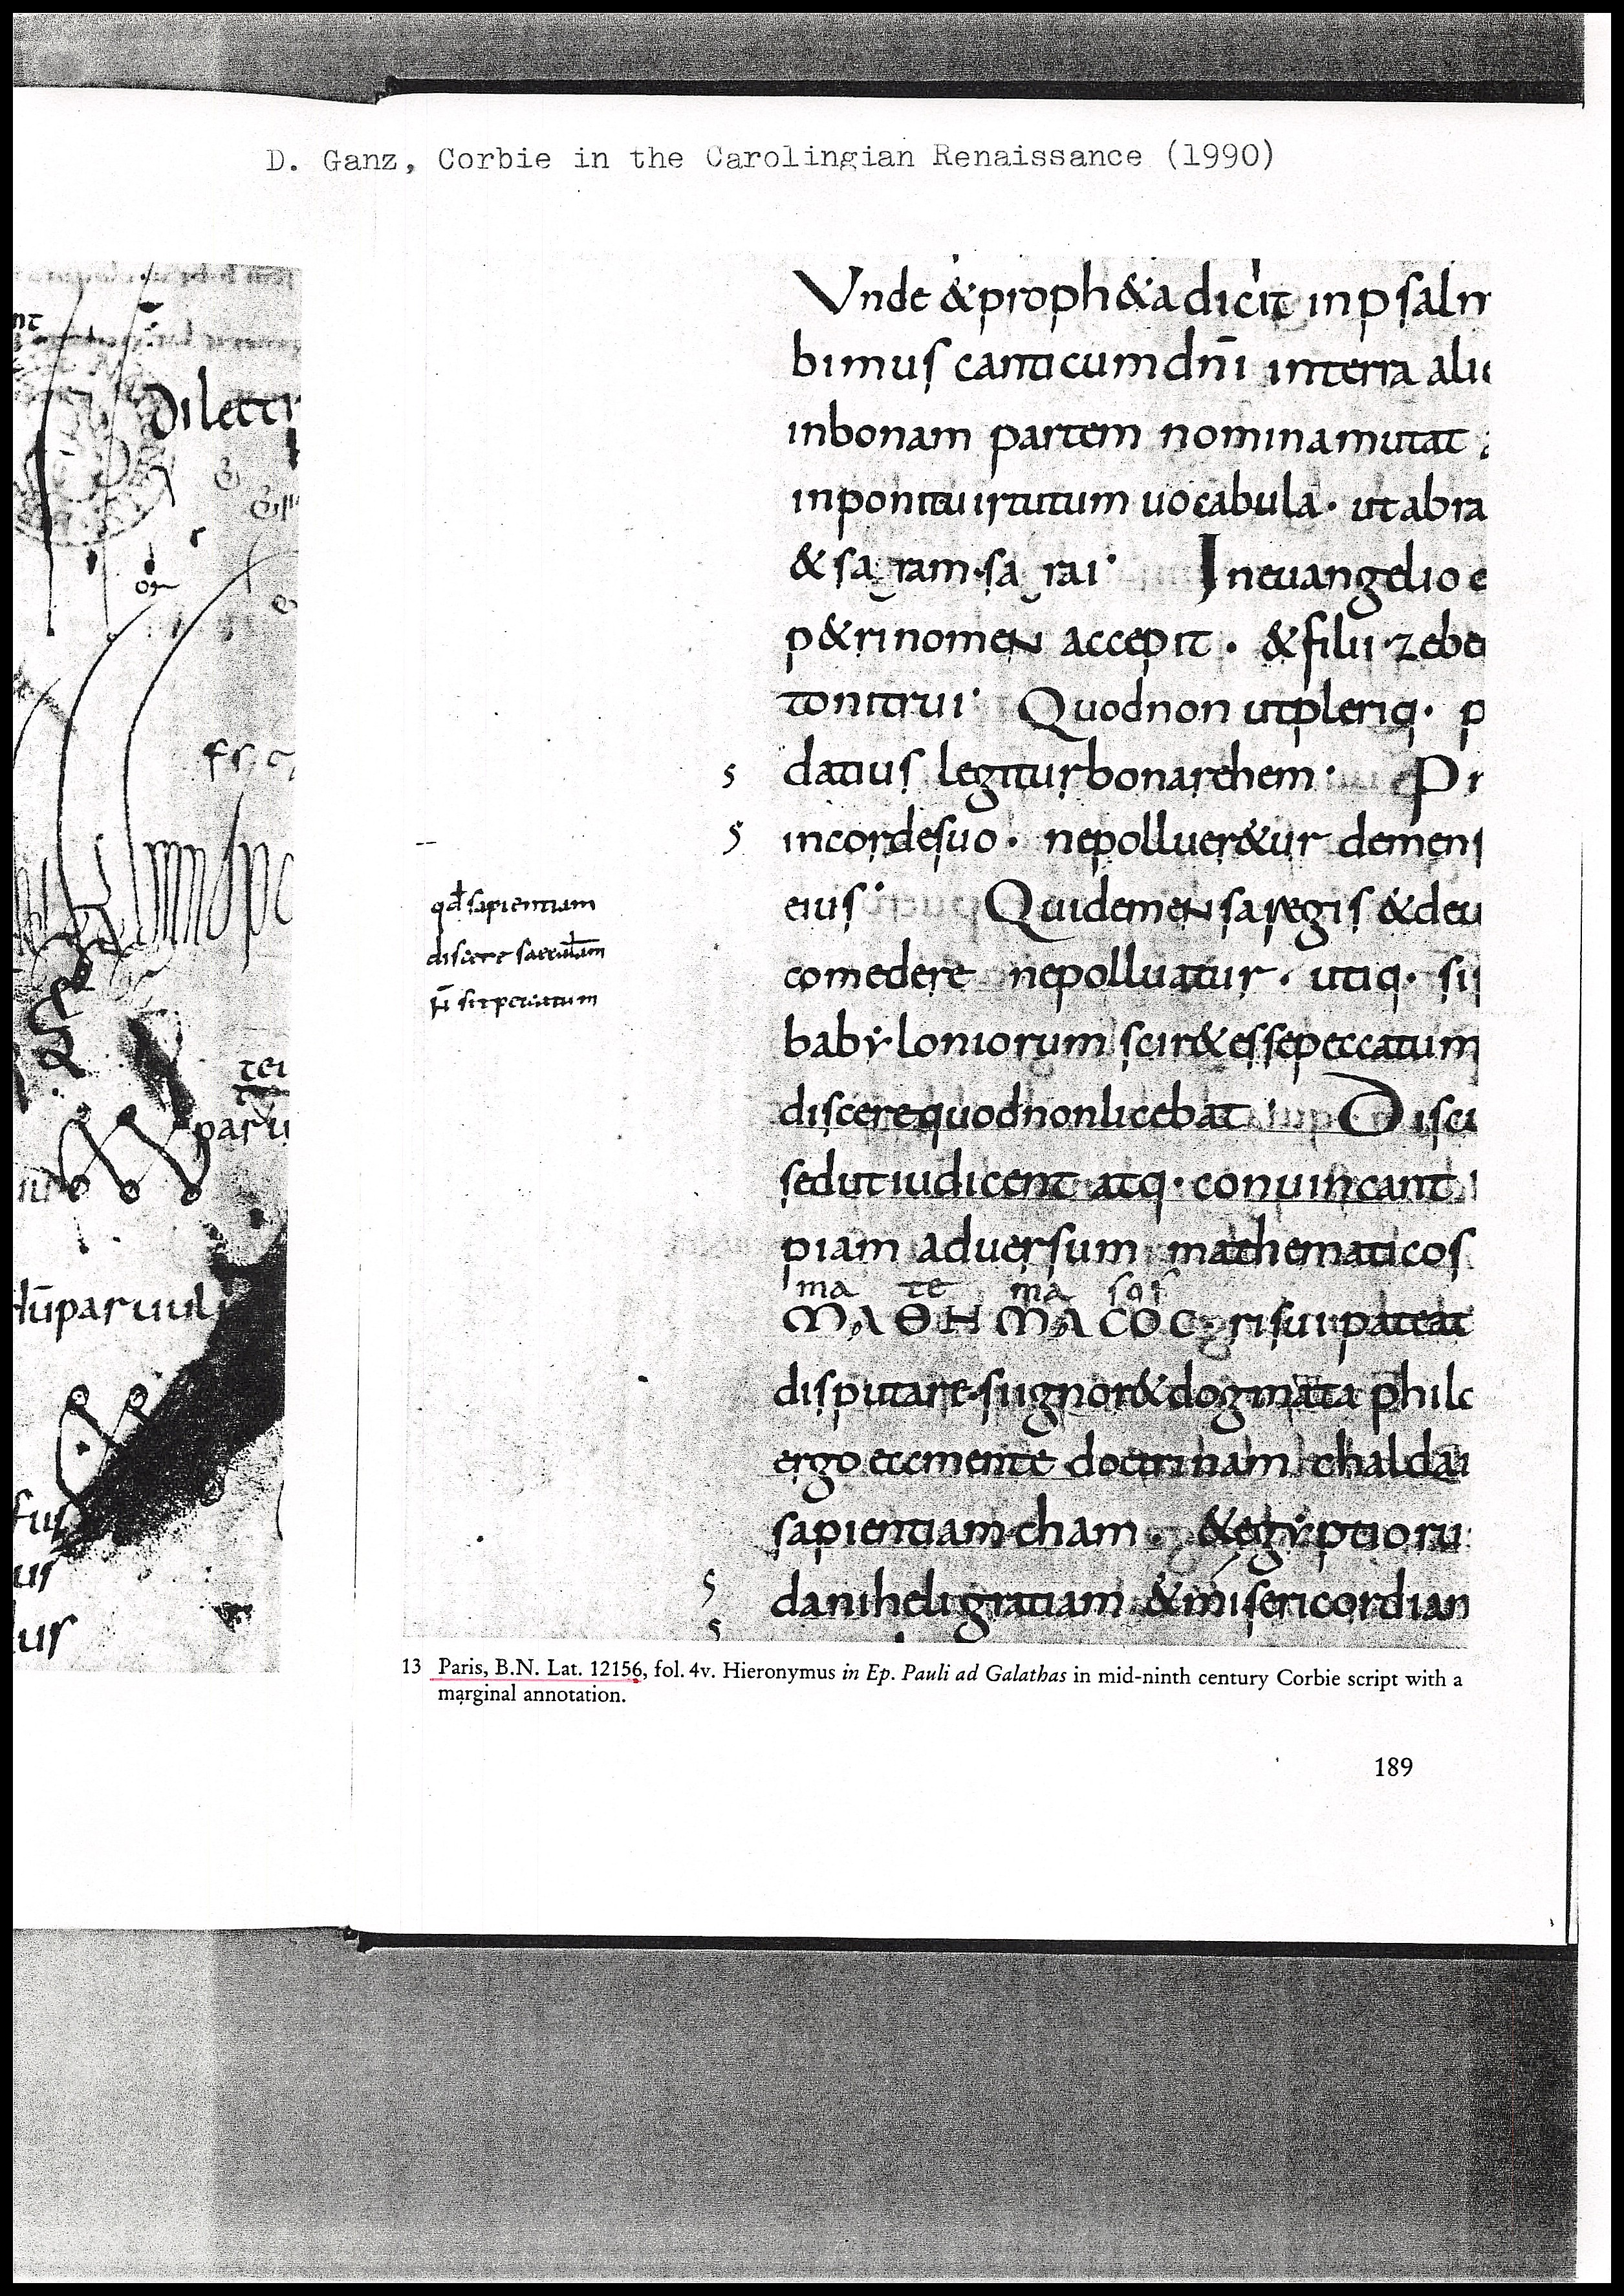 D. Ganz, Corbie in the Carolingian Renaissance (1990)
Dilecti
or
paru
parvuli
Vnde & proph&a dicit in psalm
bimus canticum dnı̄ in terra alie
in bonam partem nomina mutat
inponit & uirtutum uocabula · ut abra
& sa ram · sa rai · In euangelio e
p&ri nomen accepit · & filii zebe
tonitrui · Quod non ut pleriq · p
5 datius legitur bonarehem : Pr
5 in corde suo · ne pollueretur de mens
eius · Qui de mensa regis & de u
qđ sapientium
discere
comedere ne polluatur · utiq · si
n̄ sit peccatum
babyloniorum scir& esse peccatum
discere quod non licebat · Disci
sed ut iudicent atq · conuincant
piam aduersum mathematicos
ma te ma sos
ΜΑΘΗΜΑCΟC · risui pateat
disputare · si ignor& dogmata philo
ergo et mente doctrinam chaldai
sapientiam cham · & egyptioru
5 daniheli gratiam & misericordian
5
13 Paris, B.N. Lat. 12156, fol. 4v. Hieronymus in Ep. Pauli ad Galathas in mid-ninth century Corbie script with a
marginal annotation.
189